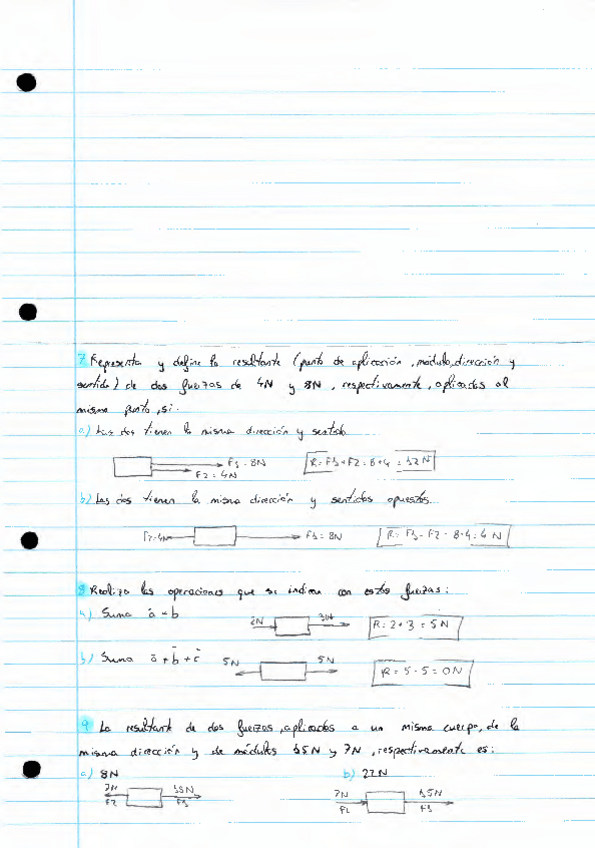 7. Representa y define la resultante (punto de aplicación, módulo, dirección y
sentido) de dos fuerzas de 4N y 8N, respectivamente, aplicadas al
mismo punto, si:
a) Las dos tienen la misma dirección y sentido
F1 = 8N
F2 = 4N
R = F1 + F2 = 8+4 = 12N
b) Las dos tienen la misma dirección y sentidos opuestos.
F2=4N
F1 = 8N
R = F1 - F2 = 8-4 = 4N
8 Realiza las operaciones que se indican con estas fuerzas:
a) Suma a + b
2N
3N
R = 2+3 = 5N
b) Suma a + b + c
5N
5N
R = 5-5 = 0N
9 La resultante de dos fuerzas, aplicadas a un mismo cuerpo, de la
misma dirección y de módulos 15N y 7N, respectivamente es:
a) 8N
b) 22N
7N
F2
15N
F1
7N
F2
15N
F1